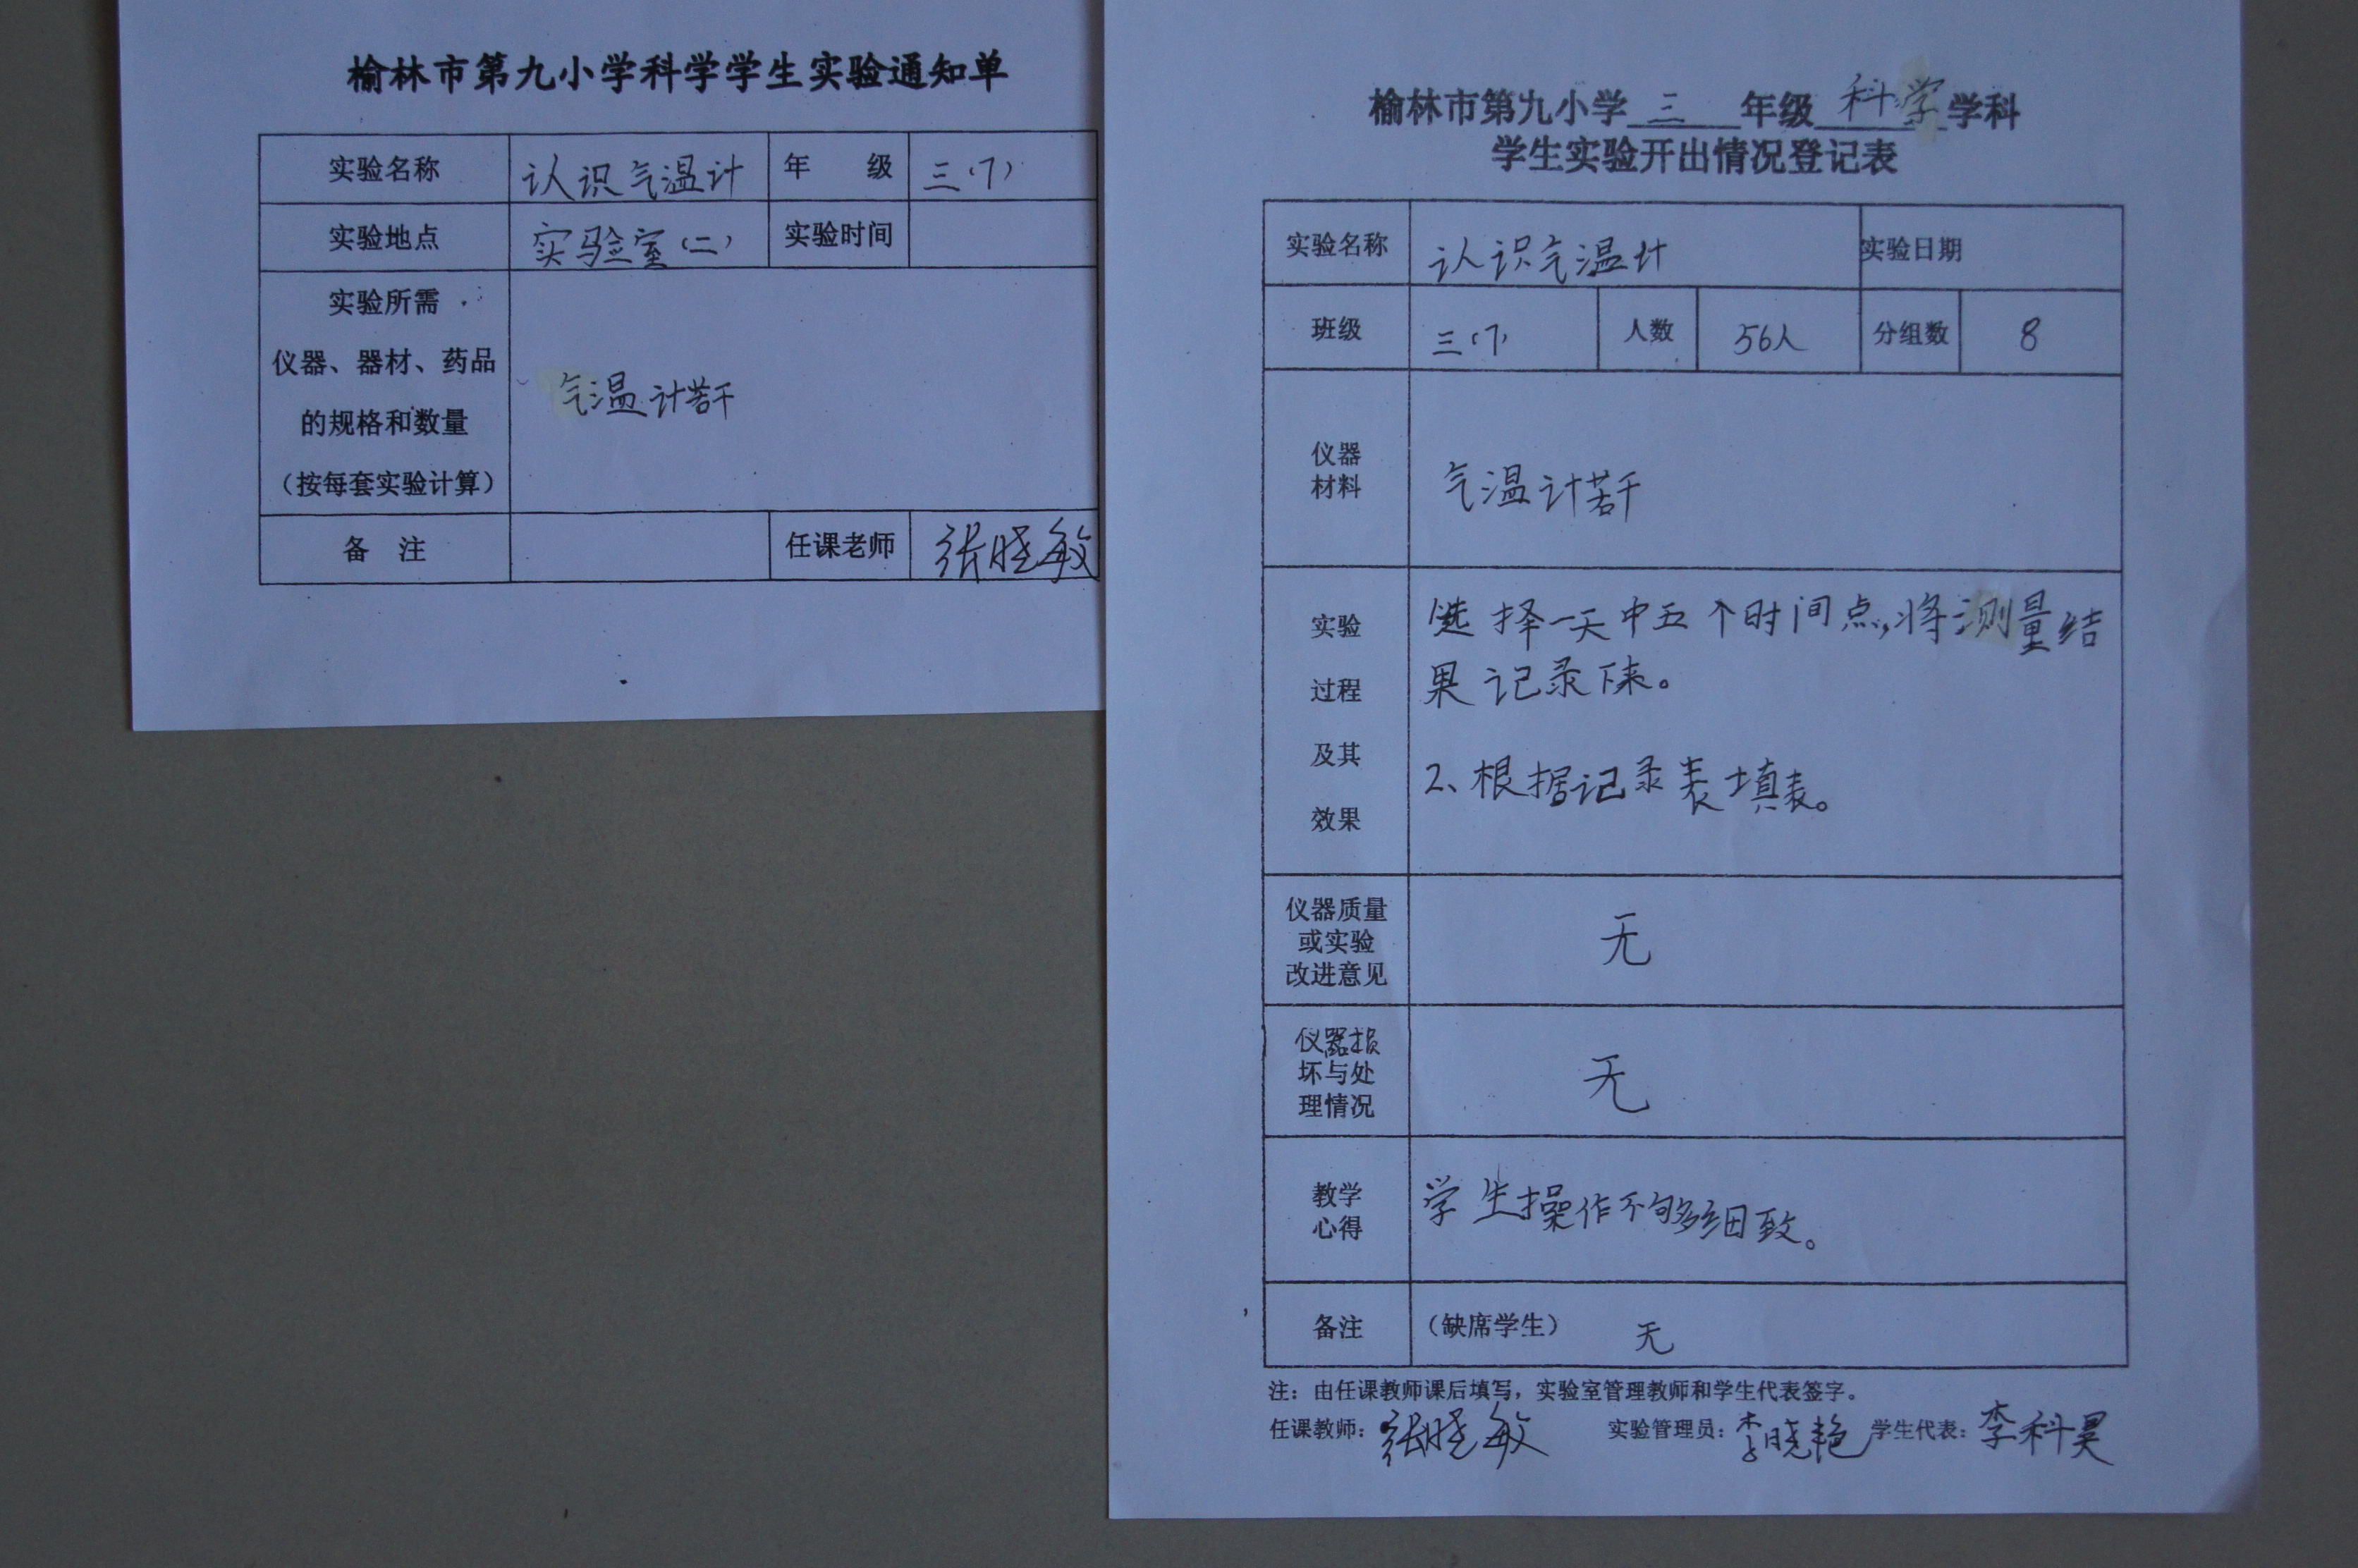 榆林市第九小学科学学生实验通知单
实验名称 认识气温计 年 级 三(7)
实验地点 实验室(二) 实验时间
实验所需
仪器、器材、药品
的规格和数量
(按每套实验计算)
气温计若干
备 注 任课老师 张晓敏
榆林市第九小学 三 年级 科学 学科
学生实验开出情况登记表
实验名称 认识气温计 实验日期
班级 三(7) 人数 56人 分组数 8
仪器
材料
气温计若干
实验
过程
及其
效果
选择一天中五个时间点,将测量结
果记录下来。
2、根据记录表填表。
仪器质量
或实验
改进意见
无
仪器损
坏与处
理情况
无
教学
心得
学生操作不够细致。
备注 (缺席学生) 无
注:由任课教师课后填写,实验室管理教师和学生代表签字。
任课教师:张晓敏 实验管理员:李晓艳 学生代表:李科昊